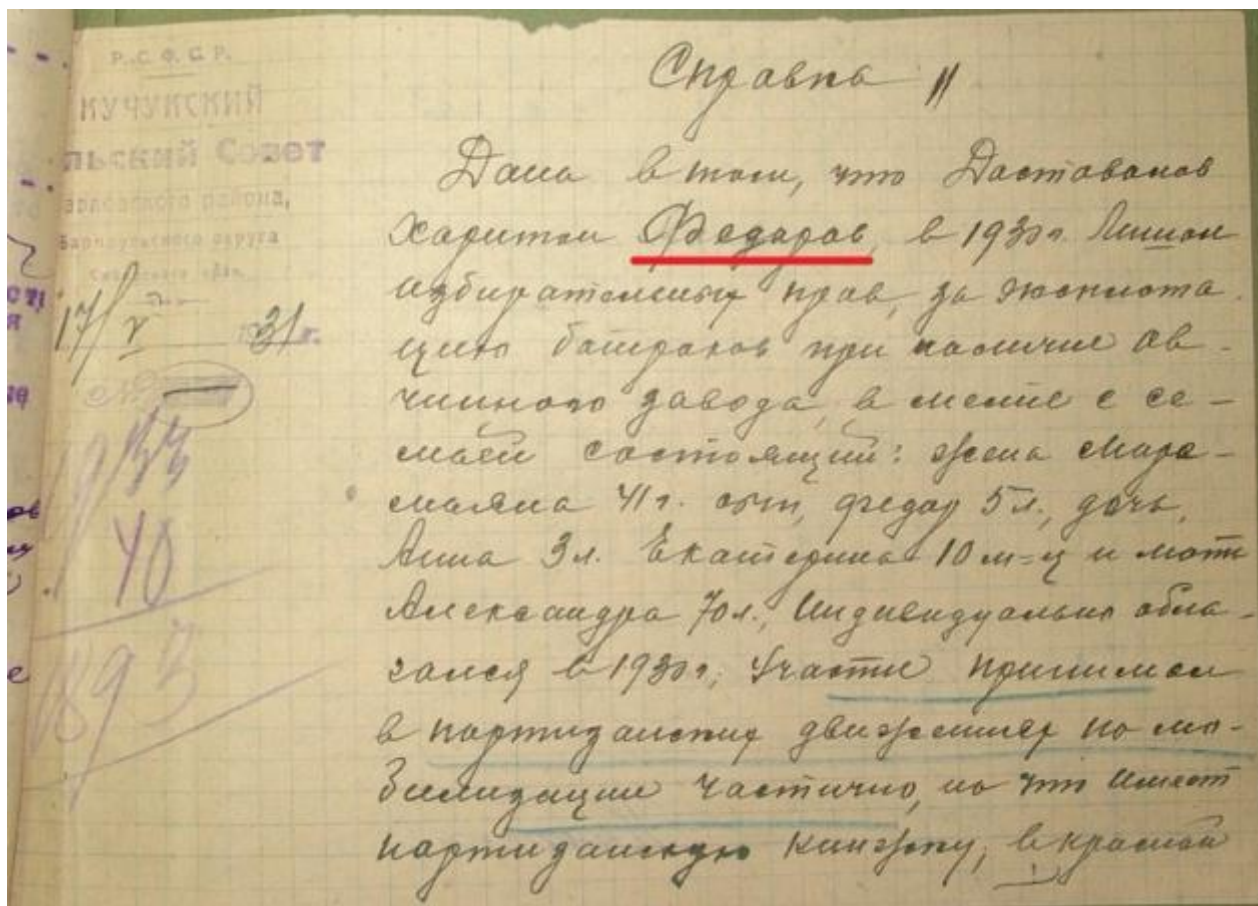 Р.С.Ф.С.Р.
КУЧУКСКИЙ
льский Совет
района,
Барнаульского округа
17/V 1931 г.
1933
40
1893
Справка
Дана в том, что Доставалов
Харитон Федаров, в 1930 г. Лишон
избирательных прав, за экспл​ота
цию батраков при наличие ов-
чинного завода, в месте с се-
мьей состоящий: жена Маре-
мьяна 41 г. сын, Федар 5 л., дочь,
Анна 3 л. Екатерина 10 м-ц и мать
Александра 70 л., Индивидуально обла-
гался в 1930 г., Участие принимал
в партизанских движениях по мо-
билизации частично, на что имеет
партизанскую книжку, в красной